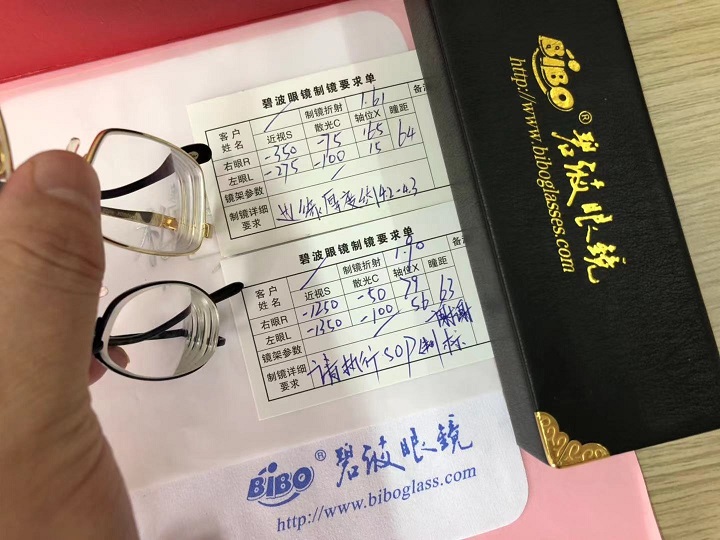 碧波眼镜制镜要求单
客户姓名
制镜折射 1.61
近视S 散光C 轴位X 瞳距
右眼R -350 -75 165 64
左眼L -275 -100 15
镜架参数
制镜详细要求 边缘厚度约4.2-4.3
碧波眼镜制镜要求单
客户姓名
制镜折射 1.90
近视S 散光C 轴位X 瞳距
右眼R -1250 -50 79 63
左眼L -1350 -100 56
镜架参数 谢谢
制镜详细要求 请执行SOP制标
BiBO® 碧波眼鏡
http://www.biboglass.com
BiBO® 碧波眼鏡
http://www.biboglasses.com